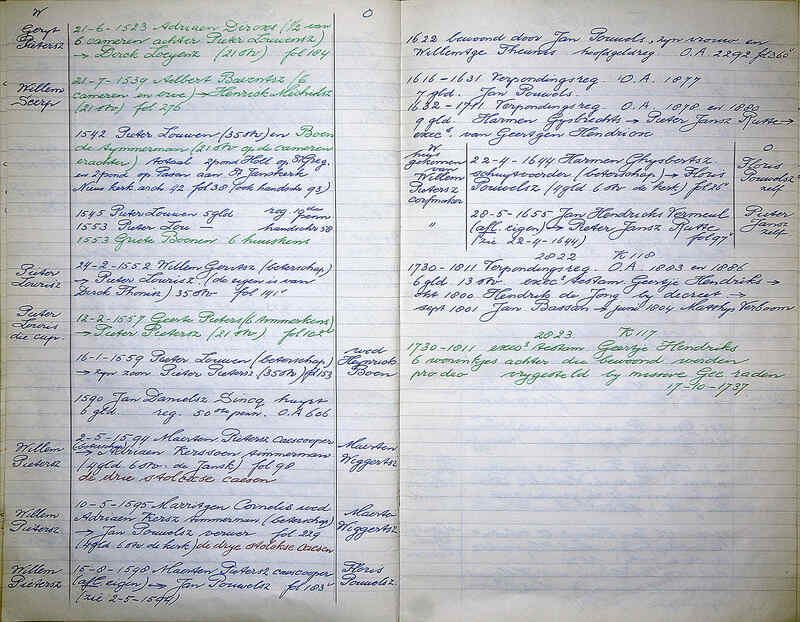 W
O
Geryt
Pietersz
21-6-1523 Adriaen Dircxs (½ van
6 cameren achter Pieter Louwensz
→ Dirck Loeyensz (21 Str) fol 184
Willem
Scerp
21-7-1539 Aelbert Barentsz (6
cameren en erve) → Henrick Michielsz
(21 Str) fol 276
1542 Pieter Louwen (35 Str) en Boen
de Tymmerman (21 Str op de cameren
erachter) totaal 2 pond Holl op St Greg.
en 2 pond op Paan aan St Janskerk
Nieuw kerk arch 42 fol 38 (oude handschr 93)
1545 Pieter Louwen 5 gld reg. 10de penn
1553 Pieter Lou — handschr 38
1553 Griete Boenen 6 huuskens
Pieter
Lourisz
24-2-1552 Willem Gerritsz (beterschap)
→ Pieter Lourisz. (de eigen is van
Dirck Thonisz) 35 Str fol 141v
Pieter
Louris
die cup.
12-2-1557 Geerte Pieters (6 Ammerkens)
→ Pieter Pietersz (21 Str) fol 102v
16-1-1559 Pieter Louwen (beterschap)
→ zyn zoon Pieter Pietersz (35 Str) fol 153
wed
Henrick
Boen
1590 Jan Danielsz Dincq huyst
6 gld reg. 50ste penn. O.A 606
Willem
Pietersz
2-5-1594 Maerten Pietersz caescooper
(beterschap)
→ Adriaen Kerssoen timmerman
(4 gld 6 Str. de Jansk) fol 98
de drie stolckse caesen
Maerten
Wiggertsz
Willem
Pietersz
10-5-1595 Marritgen Cornelis wed
Adriaen Kersz timmerman (beterschap)
→ Jan Pouwelsz verwer fol 229
(4 gld 6 Str de kerk) de drye stolckse caesen
Maerte
Wiggertsz
Willem
Pietersz
15-8-1598 Maerten Pietersz caescooper
(afl. eigen) → Jan Pouwelsz fol 183v
(zie 2-5-1594)
Floris
Pouwelsz.
1622 bewoond door Jan Pouwels, zyn vrouw en
Willemtge Theunis hoofdgeldreg. O.A. 2292 fol 360v
1616-1631 Verpondingsreg. O.A. 1877
7 gld. Jan Pouwels.
1632-1711 Verpondingsreg. O.A. 1878 en 1880
9 gld Harmen Gysbrechts → Pieter Jansz Rutte →
execs van Geertgen Hendricx
W
huys
gekomen
van
Willem
Pietersz
corfmaker
22-4-1644 Harmen Ghysbertsz.
schuytvoerder (beterschap) → Floris
Pouwelsz (4 gld 6 Str de kerk) fol 25v
O
Floris
Pouwelsz
zelf
"
28-5-1655 Jan Hendricks Vermeul
(afl. eigen) → Pieter Jansz Rutte
(zie 22-4-1644) fol 97v
Pieter
Jansz
zelf
2822 K 118
1730-1811 Verpondingsreg. O.A. 1883 en 1886
6 gld 13 Str execs testam Geertje Hendriks →
okt 1800 Hendrik de Jong by decreet →
sept 1801 Jan Basson → juni 1804 Matthys Verboom
2823 K 117
1730-1811 execs testam Geertje Hendriks
6 woninkjes achter die bewoond worden
pro deo vrygesteld by missive Gec raden
17-10-1737